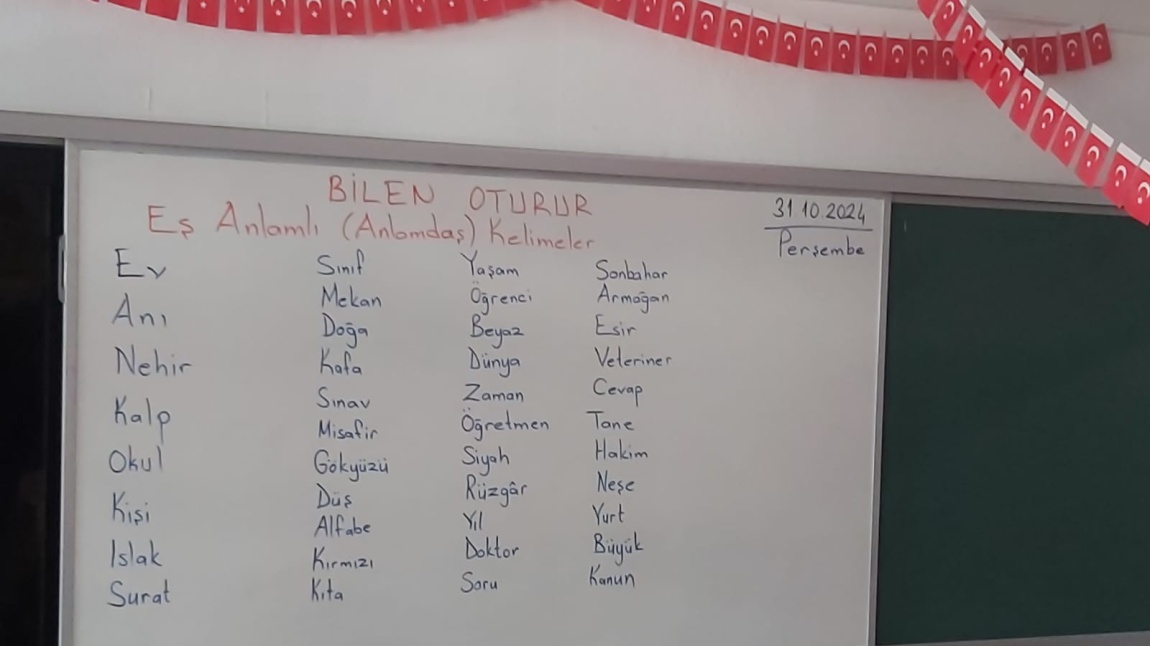 BİLEN OTURUR
Eş Anlamlı (Anlamdaş) Kelimeler
31.10.2024
Perşembe
Ev
Anı
Nehir
Kalp
Okul
Kişi
Islak
Surat
Sınıf
Mekan
Doğa
Kafa
Sınav
Misafir
Gökyüzü
Düş
Alfabe
Kırmızı
Kıta
Yaşam
Öğrenci
Beyaz
Dünya
Zaman
Öğretmen
Siyah
Rüzgâr
Yıl
Doktor
Soru
Sonbahar
Armağan
Esir
Veteriner
Cevap
Tane
Hakim
Neşe
Yurt
Büyük
Kanun